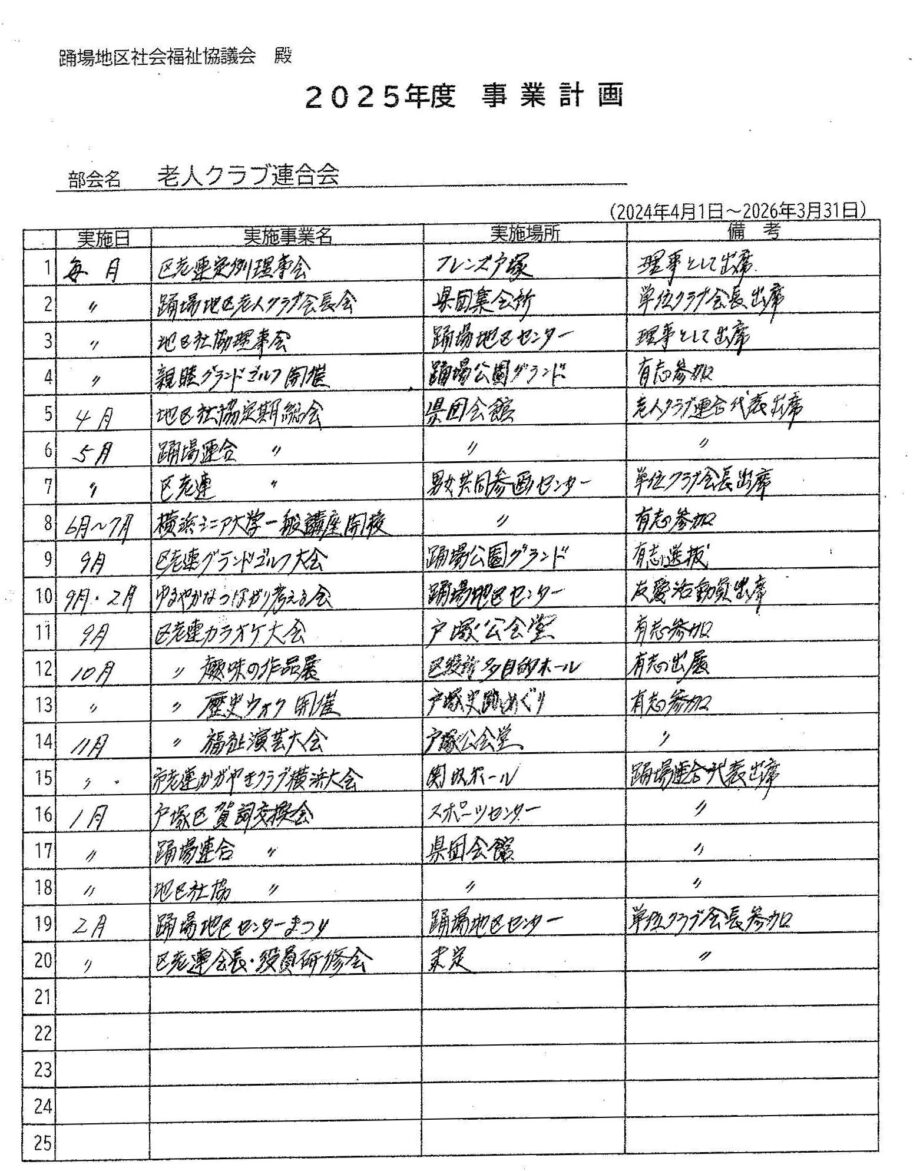 踊場地区社会福祉協議会 殿
2025年度 事業計画
部会名 老人クラブ連合会
(2024年4月1日～2026年3月31日)
実施日 実施事業名 実施場所 備考
1 毎月 区老連定例理事会 フレンズ戸塚 理事として出席
2 〃 踊場地区老人クラブ会長会 県団集会所 単位クラブ会長出席
3 〃 地区社協理事会 踊場地区センター 理事として出席
4 〃 親睦グランドゴルフ開催 踊場公園グランド 有志参加
5 4月 地区社協定期総会 県団会館 老人クラブ連合代表出席
6 5月 踊場連合 〃 〃 〃
7 〃 区老連 〃 男女共同参画センター 単位クラブ会長出席
8 6月～7月 横浜シニア大学一般講座開校 〃 有志参加
9 9月 区老連グランドゴルフ大会 踊場公園グランド 有志選抜
10 9月・2月 ゆるやかなつながり考える会 踊場地区センター 友愛活動員出席
11 9月 区老連カラオケ大会 戸塚公会堂 有志参加
12 10月 〃 趣味の作品展 区役所多目的ホール 有志の出展
13 〃 〃 歴史ウオク開催 戸塚史跡めぐり 有志参加
14 11月 〃 福祉演芸大会 戸塚公会堂 〃
15 〃 市老連かがやきクラブ横浜大会 関内ホール 踊場連合代表出席
16 1月 戸塚区賀詞交換会 スポーツセンター 〃
17 〃 踊場連合 〃 県団会館 〃
18 〃 地区社協 〃 〃 〃
19 2月 踊場地区センターまつり 踊場地区センター 単位クラブ会長参加
20 〃 区老連会長・役員研修会 未定 〃
21
22
23
24
25